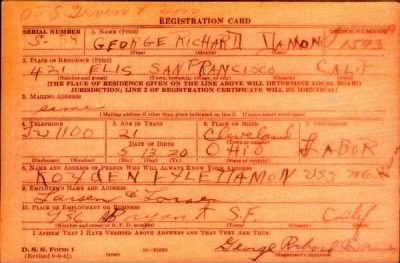 REGISTRATION CARD
SERIAL NUMBER 1. NAME (Print) ORDER NUMBER
S- GEORGE RICHARD DAMON 1593
(First) (Middle) (Last)
2. PLACE OF RESIDENCE (Print)
421 ELIS SAN FRANCISCO CALIF
(Number and street) (Town, township, village, or city) (County) (State)
[THE PLACE OF RESIDENCE GIVEN ON THE LINE ABOVE WILL DETERMINE LOCAL BOARD
JURISDICTION; LINE 2 OF REGISTRATION CERTIFICATE WILL BE IDENTICAL]
3. MAILING ADDRESS
same
[Mailing address if other than place indicated on line 2. If same insert word same]
4. TELEPHONE 5. AGE IN YEARS 6. PLACE OF BIRTH
1100 21 Cleveland
DATE OF BIRTH (Town or county)
5 13 20 OHIO LABOR
(Exchange) (Number) (Mo.) (Day) (Yr.) (State or country)
8. NAME AND ADDRESS OF PERSON WHO WILL ALWAYS KNOW YOUR ADDRESS
LYLE DAMON
9. EMPLOYER'S NAME AND ADDRESS
Larsen & Larsen
10. PLACE OF EMPLOYMENT OR BUSINESS
756 Bryant S.F. Calif
(Number and street or R. F. D. number) (Town) (County) (State)
I AFFIRM THAT I HAVE VERIFIED ABOVE ANSWERS AND THAT THEY ARE TRUE.
D. S. S. Form 1
George Richard Damon